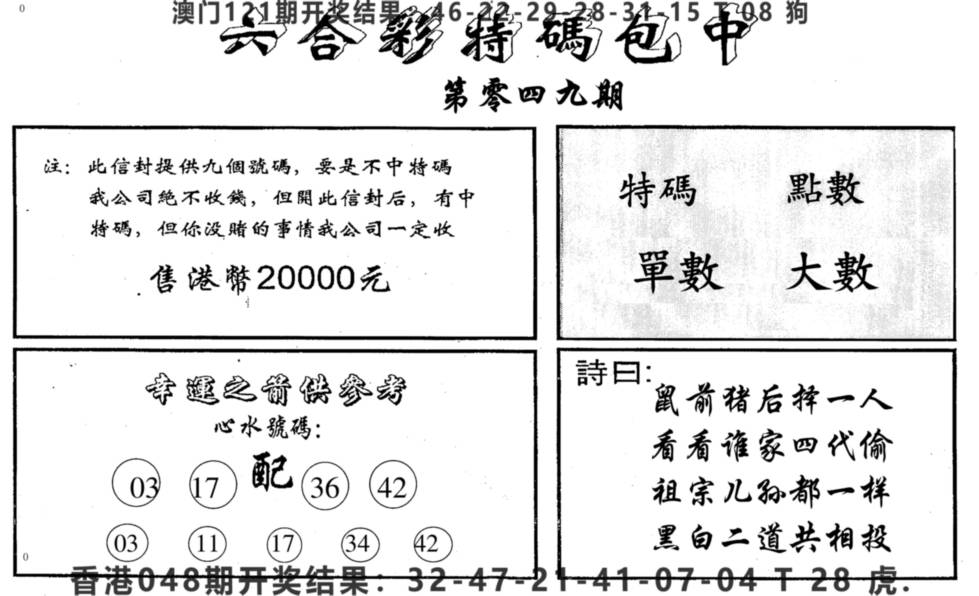 0
澳门121期开奖结果:46-22-29-28-31-15 T 08 狗
六合彩特碼包中
第零四九期
注: 此信封提供九個號碼, 要是不中特碼
我公司絕不收錢, 但開此信封后, 有中
特碼, 但你没賭的事情我公司一定收
售港幣20000元
特碼 點數
單數 大數
幸運之前供參考
心水號碼:
03 17 配 36 42
03 11 17 34 42
詩曰:
鼠前猪后择一人
看看谁家四代偷
祖宗儿孙都一样
黑白二道共相投
0
香港048期开奖结果: 32-47-21-41-07-04 T 28 虎.